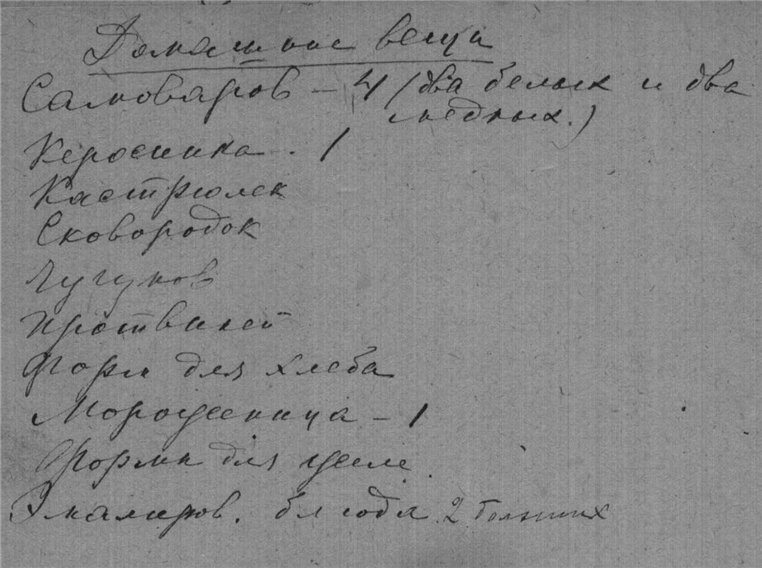 Домашние вещи
Самоваров – 4 (два белых и два
медных.)
Керосинка . 1
Кастрюлек
Сковородок
Чугунов
Противней
Форм для хлеба
Мороженица – 1
Формы для желе
Эмалиров. блюда 2 больших